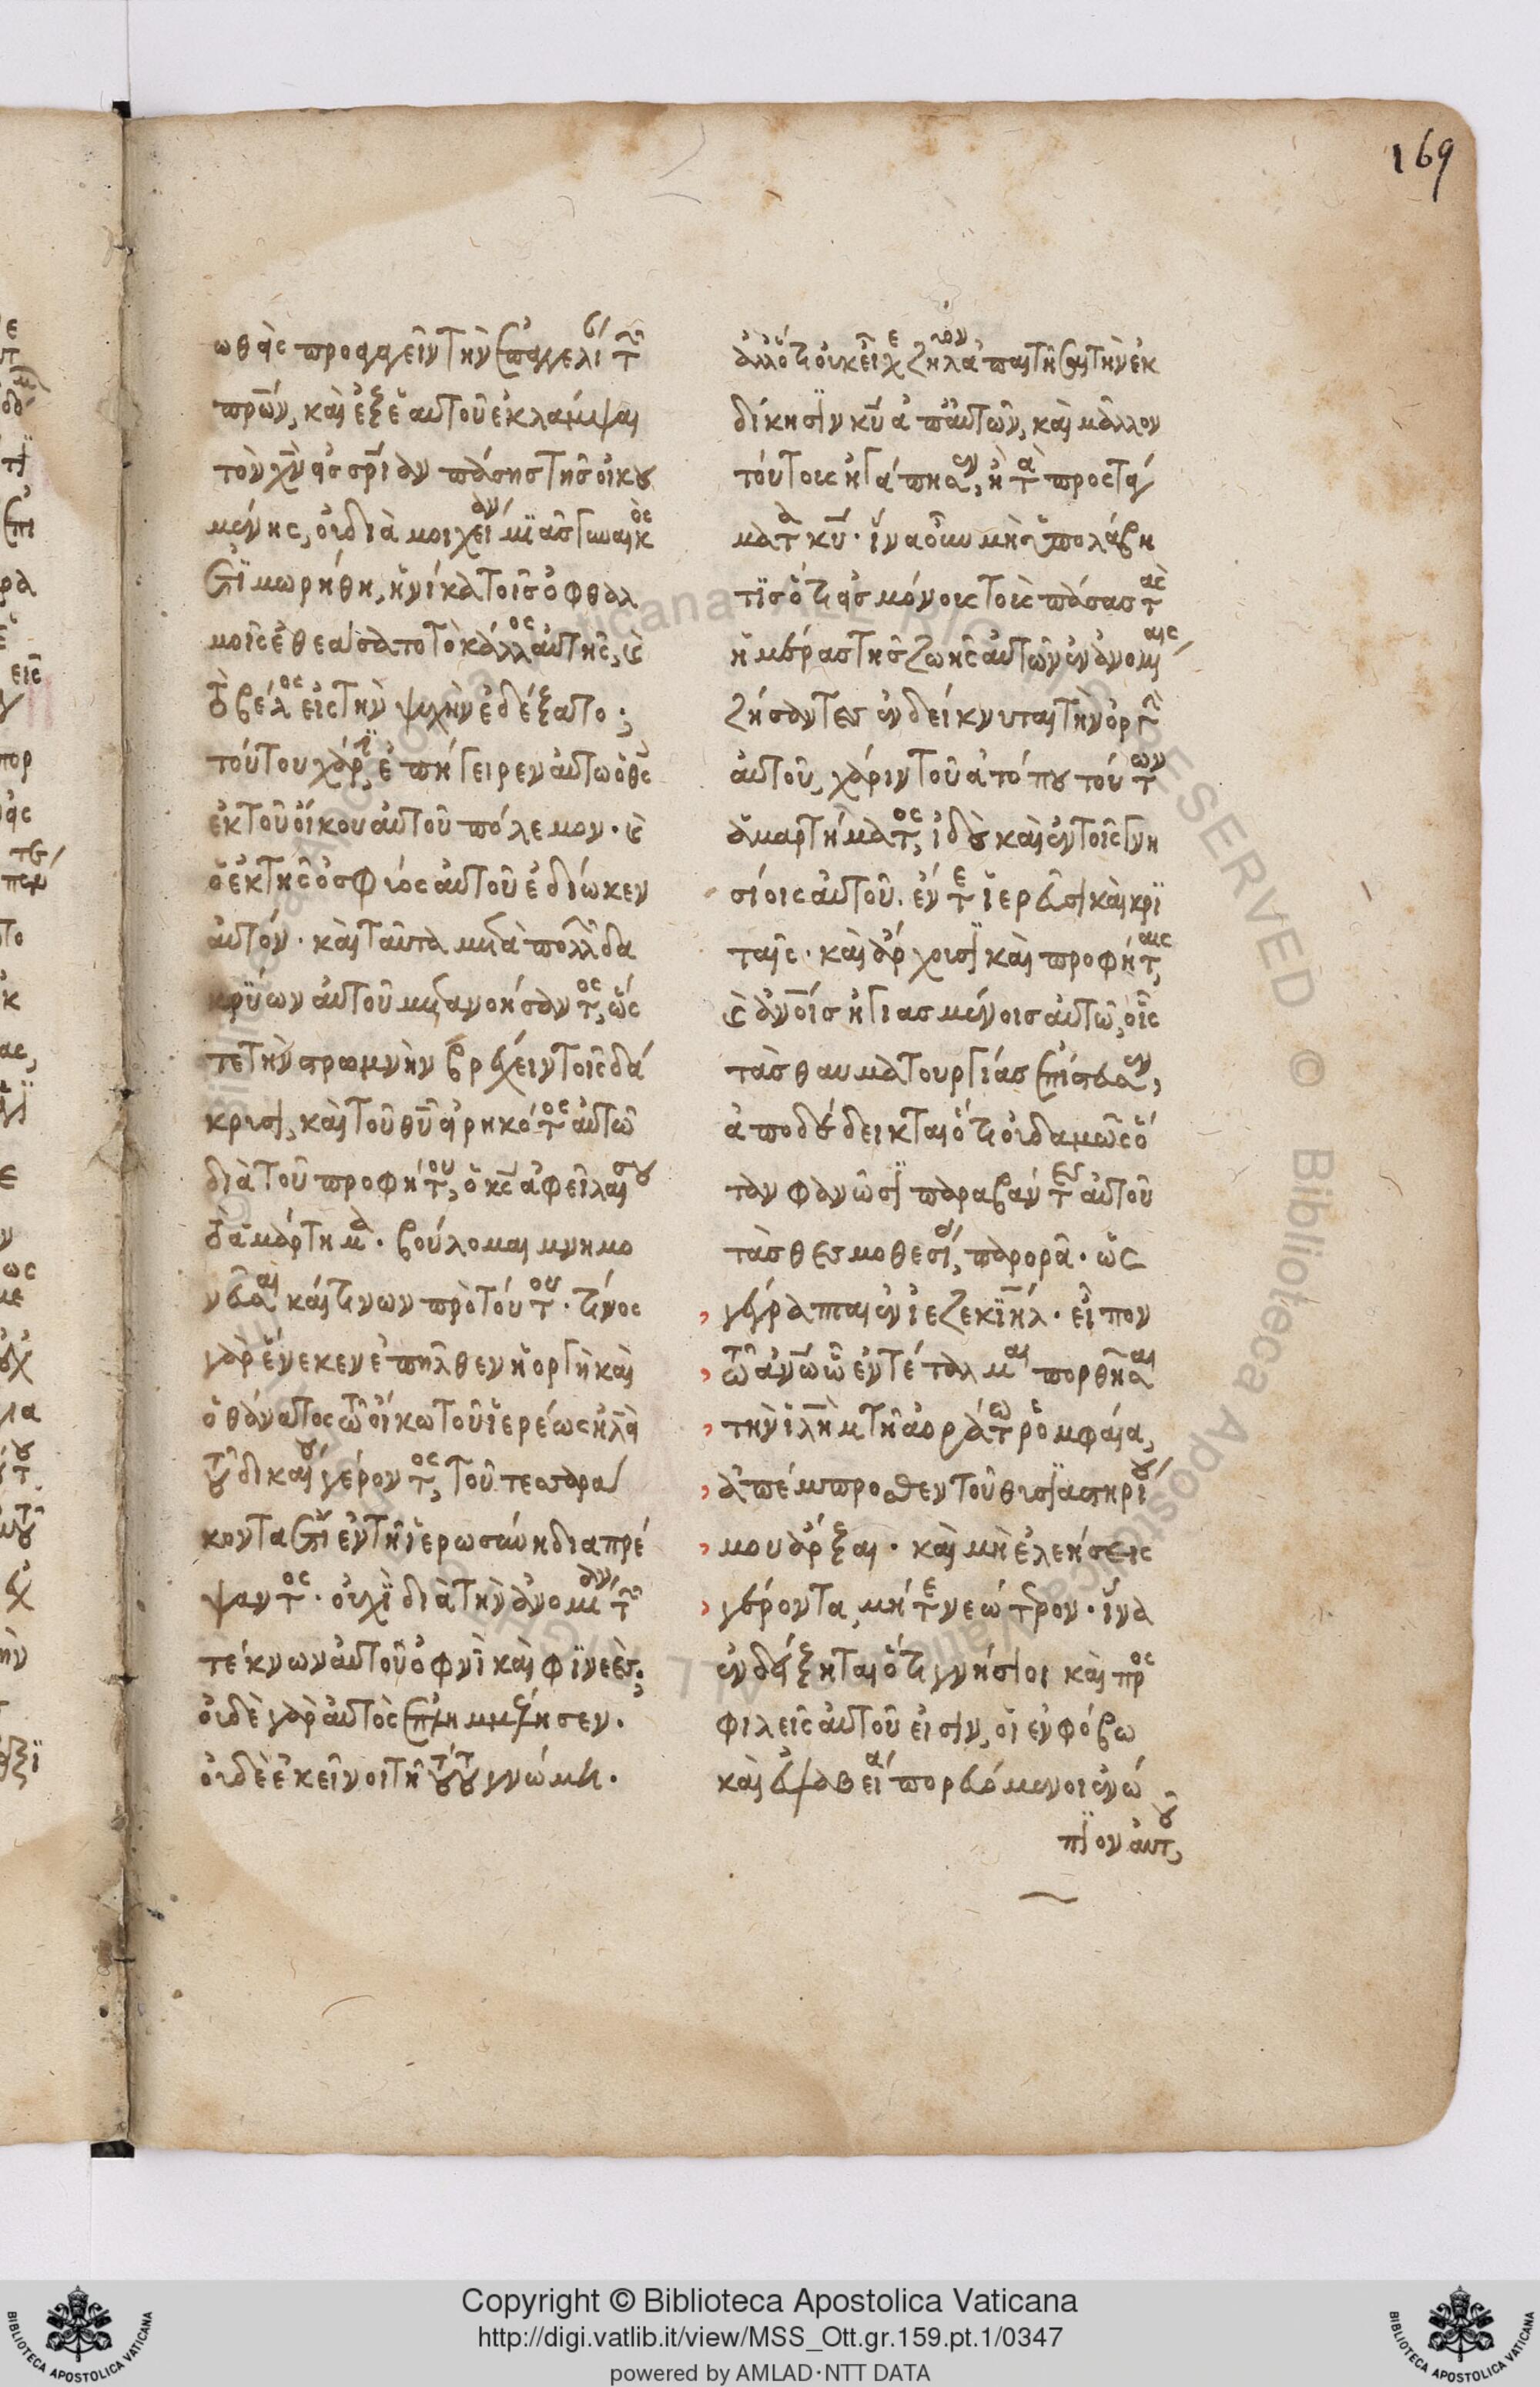 169
ωθεὶς προσφωνεῖν τὴν ἐπαγγελί τῶν
πρῶν, καὶ ἐξ ἑαυτοῦ ἐκλάμψαι
τὸν χν εἰς σρίαν πάσης τῆς οἰκου
μένης, οὐ διὰ μοιχείαν μϊᾶς γυναικὸς
ἐτϊμωρήθη, ἡνίκα τοῖς ὀφθαλ
μοῖς ἐθεάσατο τὸ κάλλος αὐτῆς, καὶ
τὸ βέλος εἰς τὴν ψυχὴν ἐδέξατο;
τούτου χάριν, ἐπήγειρεν αὐτῶ ὁ θς
ἐκ τοῦ οἴκου αὐτοῦ πόλεμον· καὶ
ὁ ἐκ τῆς ὀσφύος αὐτοῦ ἐδίωκεν
αὐτόν· καὶ ταῦτα μετὰ πολλὰ δα
κρύων αὐτοῦ μετανοήσαντος, ὥς
τε τὴν στρωμνὴν βρέχειν τοῖς δά
κρυσι, καὶ τοῦ θυ εἰρηκότος αὐτῶ
διὰ τοῦ προφήτου, ὁ κς ἀφεῖλαι σου
τὸ ἁμάρτημα. βούλομαι μνημο
νεῦσαι καί τινων πρὸ τούτου. τίνος
γὰρ ἕνεκεν ἐπῆλθεν ἡ ὀργὴ καὶ
ὁ θάνατος τῶ οἴκω τοῦ ἱερέως ἠλεὶ
τοῦ δικαίου γέροντος, τοῦ τεσσαρά
κοντα ἔτη ἐν τῆ ἱερωσύνη διαπρέ
ψαντος. οὐχὶ διὰ τὴν ἀνομίαν τῶν
τέκνων αὐτοῦ ὀφνὶ καὶ φϊνεές;
οὐδὲ γὰρ αὐτὸς ἐπλημμέλησεν.
οὐδὲ ἐκεῖνοι τῆ τούτου γνώμη.
ἀλλ' ὅτι οὐκ εἶχε ζῆλον ἀπαιτῆσαι τὴν ἐκ
δίκησϊν κυ ἀπ' αὐτῶν, καὶ μᾶλλον
τούτοις ἠγάπησεν, ἢ τὰ προστά
ματα κυ· ἵνα οὖν μὴ ὑπολάβη
τϊς ὅτι εἰς μόνους τοὺς πάσας τὰς
ἡμέρας τῆς ζωῆς αὐτῶν ἐν ἀνομίαις
ζήσαντες ἐνδείκνυται τὴν ὀργὴν
αὐτοῦ, χάριν τοῦ ἀτόπου τούτων
ἁμαρτήματος, ἰδοὺ καὶ ἐν τοῖς γνη
σίοις αὐτοῦ. ἔν τε ἱερεῦσι καὶ κρϊ
ταῖς· καὶ ἄρχουσϊ καὶ προφήταις,
καὶ ἀνοις ἡγιασμένοις αὐτῶ, οἷς
τὰς θαυματουργίας ἐπίστευσεν,
ἀποδέδεικται ὅτι οὐδαμῶς ὅ
ταν φανῶσϊ παραβάντες αὐτοῦ
τὰς θεσμοθεσίας, παρορᾶ· ὥς
γέγραπται ἐν ἰεζεκϊήλ· εἶπον
τῶ ἀνω ὧ ἐντέταλμαι πορθῆσαι
τὴν ἰλημ τῆ ἀοράτω ῥομφαία,
ἀπέμπροσθεν τοῦ θυσϊαστηρίου
μου ἄρξαι· καὶ μὴ ἐλεήσεις
γέροντα, μήτε νεώτερον· ἵνα
ἐνδείξηται ὅτι γνήσϊοι καὶ προς
φιλεῖς αὐτοῦ εἰσϊν, οἱ ἐν φόβω
καὶ εὐλαβεία πορευόμενοι ἐνώ
πϊον αὐτοῦ,
Copyright © Biblioteca Apostolica Vaticana
http://digi.vatlib.it/view/MSS_Ott.gr.159.pt.1/0347
powered by AMLAD·NTT DATA